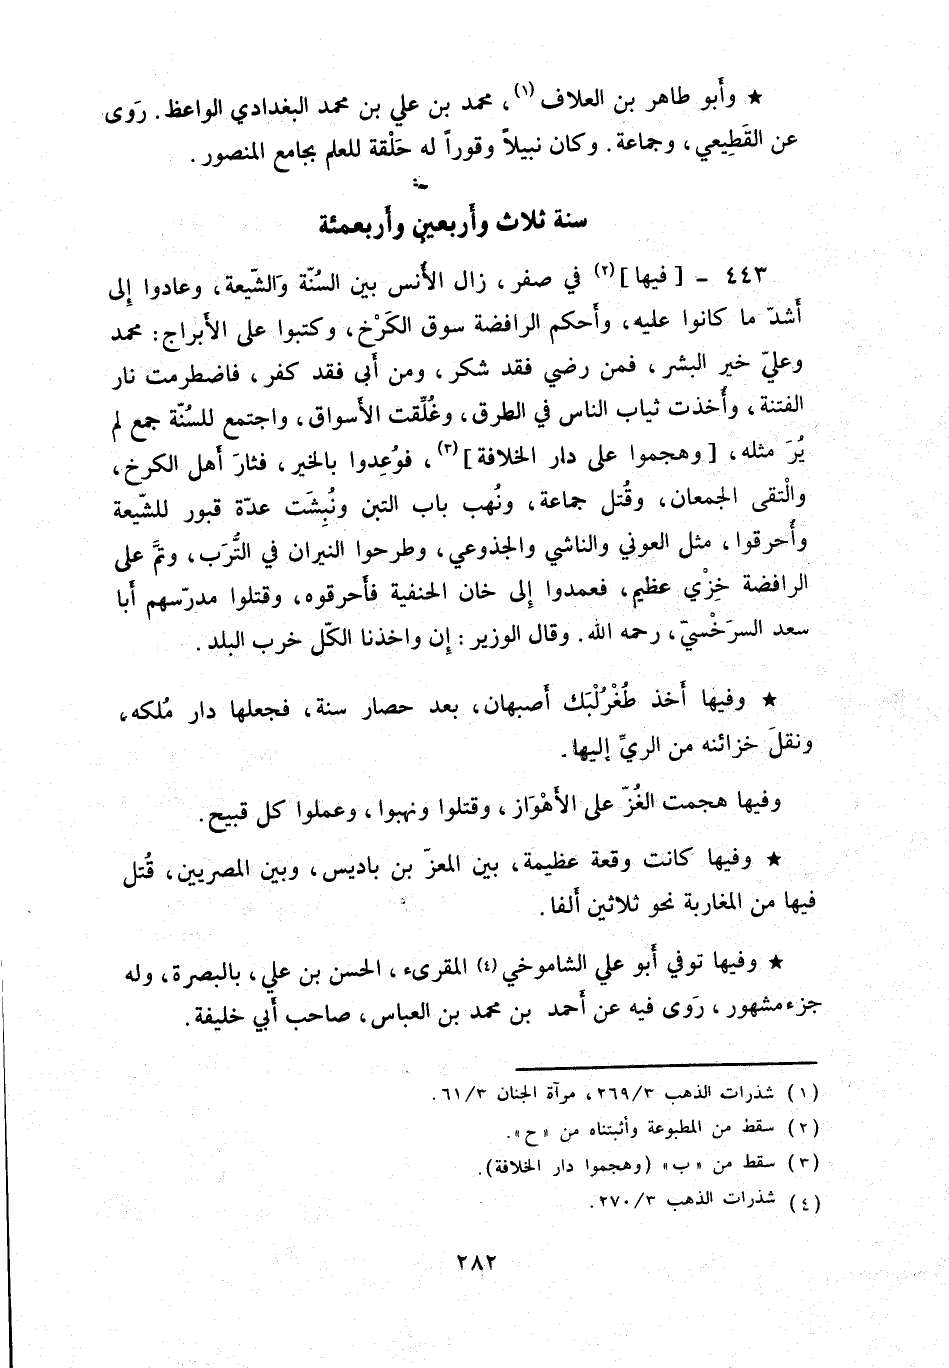 ★ وأَبو طاهر بن العلاف (١)، محمد بن علي بن محمد البغدادي الواعظ. رَوى
عن القَطِيعي، وجماعة. وكان نبيلاً وقوراً له حَلْقة للعلم بجامع المنصور.
سنة ثلاث وأَربعين وأَربعمئة
٤٤٣ - [فيها] (٢) في صفر، زال الأُنس بين السُنّة والشّيعة، وعادوا إِلى
أَشدّ ما كانوا عليه، وأَحكم الرافضة سوق الكَرْخ، وكتبوا على الأَبراج: محمد
وعليّ خير البشر، فمن رضي فقد شكر، ومن أَبى فقد كفر، فاضطرمت نار
الفتنة، وأُخذت ثياب الناس في الطرق، وغُلِّقت الأَسواق، واجتمع للسُنّة جمع لم
يُرَ مثله، [وهجموا على دار الخلافة] (٣)، فوُعِدوا بالخير، فثارَ أَهل الكرخ،
والْتقى الجمعان، وقُتل جماعة، ونُهب باب التبن ونُبِشَت عدّة قبور للشّيعة
وأَحرقوا، مثل العوني والناشي والجذوعي، وطرحوا النيران في التُّرَب، وتمَّ على
الرافضة خِزْي عظيم، فعمدوا إِلى خان الحنفية فأَحرقوه، وقتلوا مدرّسهم أَبا
سعد السرَخْسيّ، رحمه الله. وقال الوزير: إِن واخذنا الكّل خرب البلد.
★ وفيها أَخذ طُغْرُلْبَك أَصبهان، بعد حصار سنة، فجعلها دار مُلكه،
ونقلَ خزائنه من الريِّ إِليها.
وفيها هجمت الغُزّ على الأَهْوَاز، وقتلوا ونهبوا، وعملوا كل قبيح.
★ وفيها كانت وقعة عظيمة، بين المعزّ بن باديس، وبين المصريين، قُتل
فيها من المغاربة نحو ثلاثين أَلفا.
★ وفيها توفي أَبو علي الشاموخي (٤) المقرىء، الحسن بن علي، بالبصرة، وله
جزء مشهور، رَوى فيه عن أَحمد بن محمد بن العباس، صاحب أَبي خليفة.
(١) شذرات الذهب ٢٦٩/٣، مرآة الجنان ٦١/٣.
(٢) سقط من المطبوعة وأثبتناه من «ح».
(٣) سقط من «ب» (وهجموا دار الخلافة).
(٤) شذرات الذهب ٢٧٠/٣.
٢٨٢